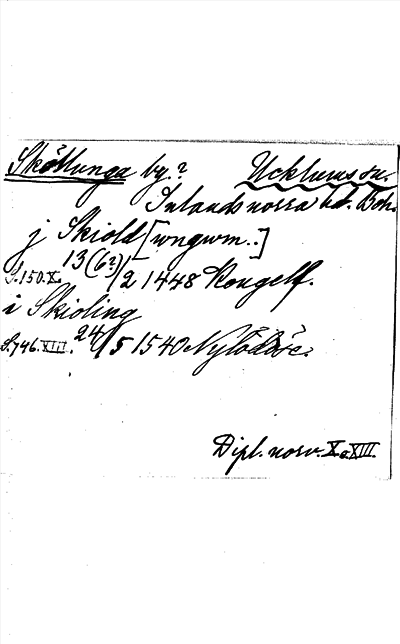 Sköllunga by.? Ucklums sn.
Inlands norra hd. Boh.
j Skiold [wngwm..]
S. 150. X. 13(6?)/2 1448 Kongelf.
i Skioling
S. 746. XIII. 24/5 1540 Nylödöse.
Dipl. norv. X. o. XIII.